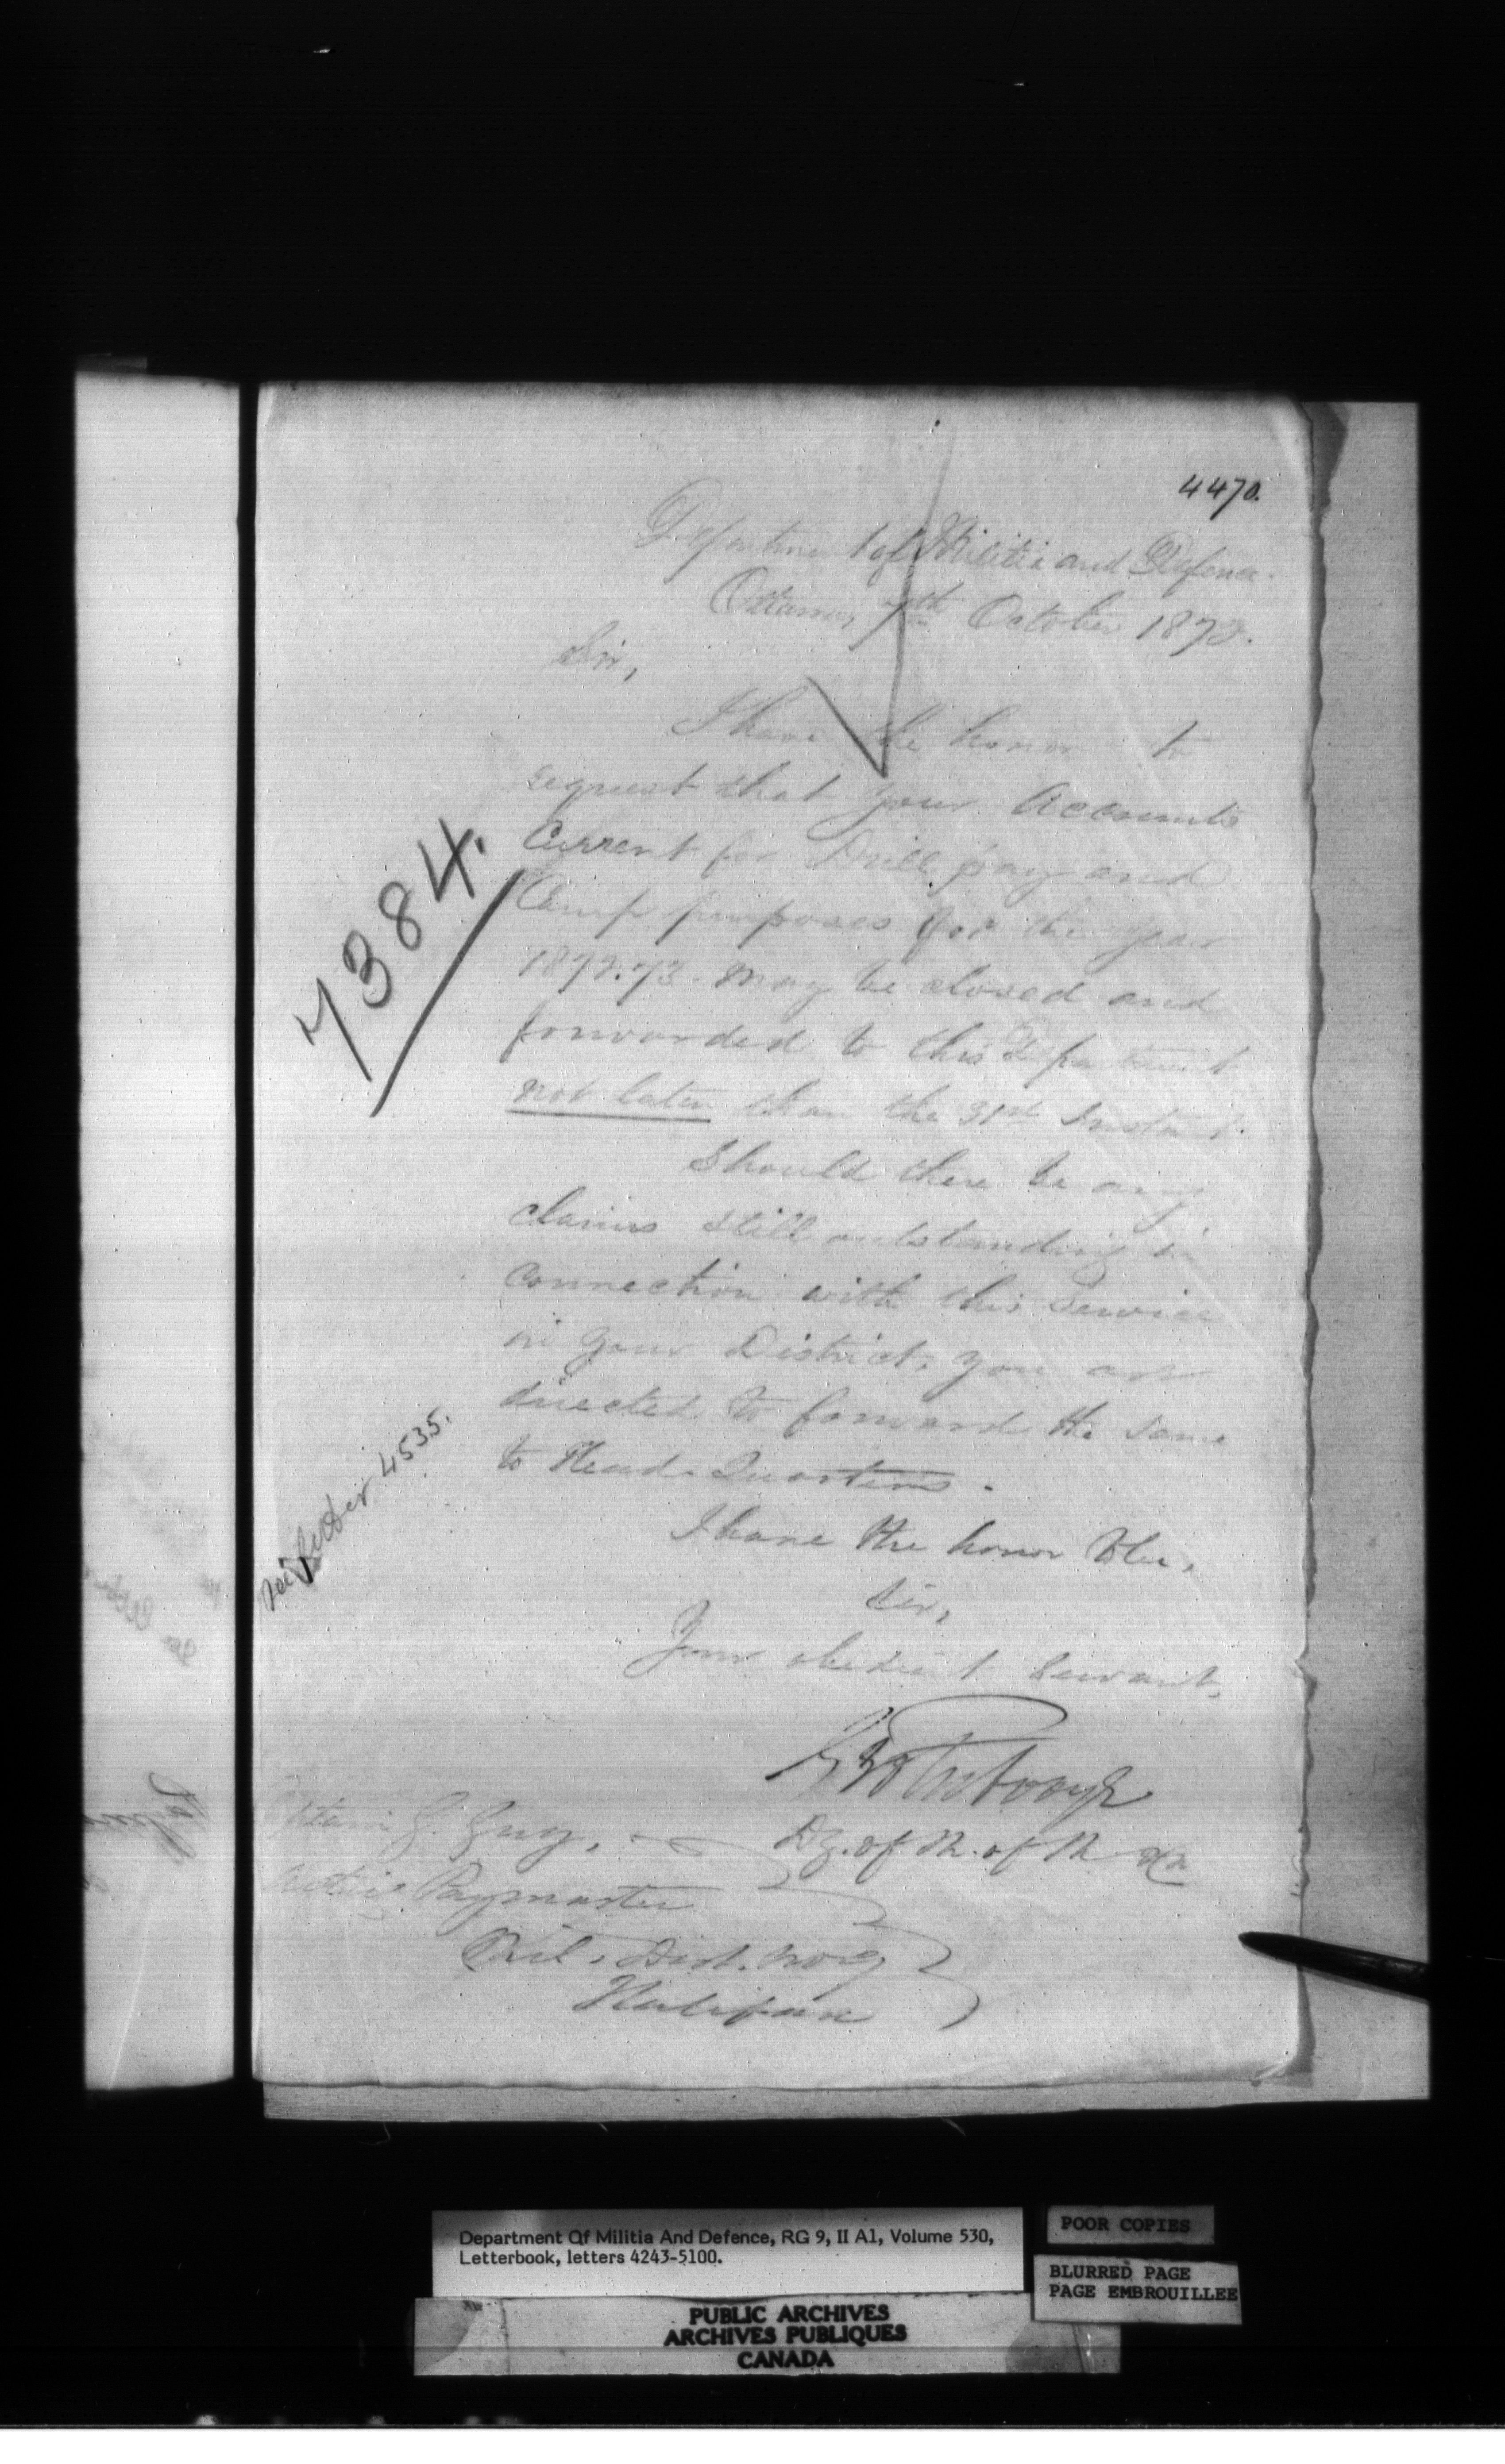 4470.
Department of Militia and Defence.
Ottawa, 7th October 1873.
Sir,
I have the honor to
request that your Accounts
Current for Drill pay and
Camp purposes for the year
1872.73. may be closed and
forwarded to this Department
not later than the 31st Instant.
Should there be any
claims still outstanding in
connection with this Service
in your District, you are
directed to forward the same
to Head Quarters.
I have the honor to be,
Sir,
Your obedient Servant,
Dy. of M. of M &
Captain J. Guy,
Acting Paymaster
Mil. Dist. No 9
Halifax
7384.
See letter 4535.
Department Of Militia And Defence, RG 9, II A1, Volume 530,
Letterbook, letters 4243-5100.
POOR COPIES
BLURRED PAGE
PAGE EMBROUILLEE
PUBLIC ARCHIVES
ARCHIVES PUBLIQUES
CANADA